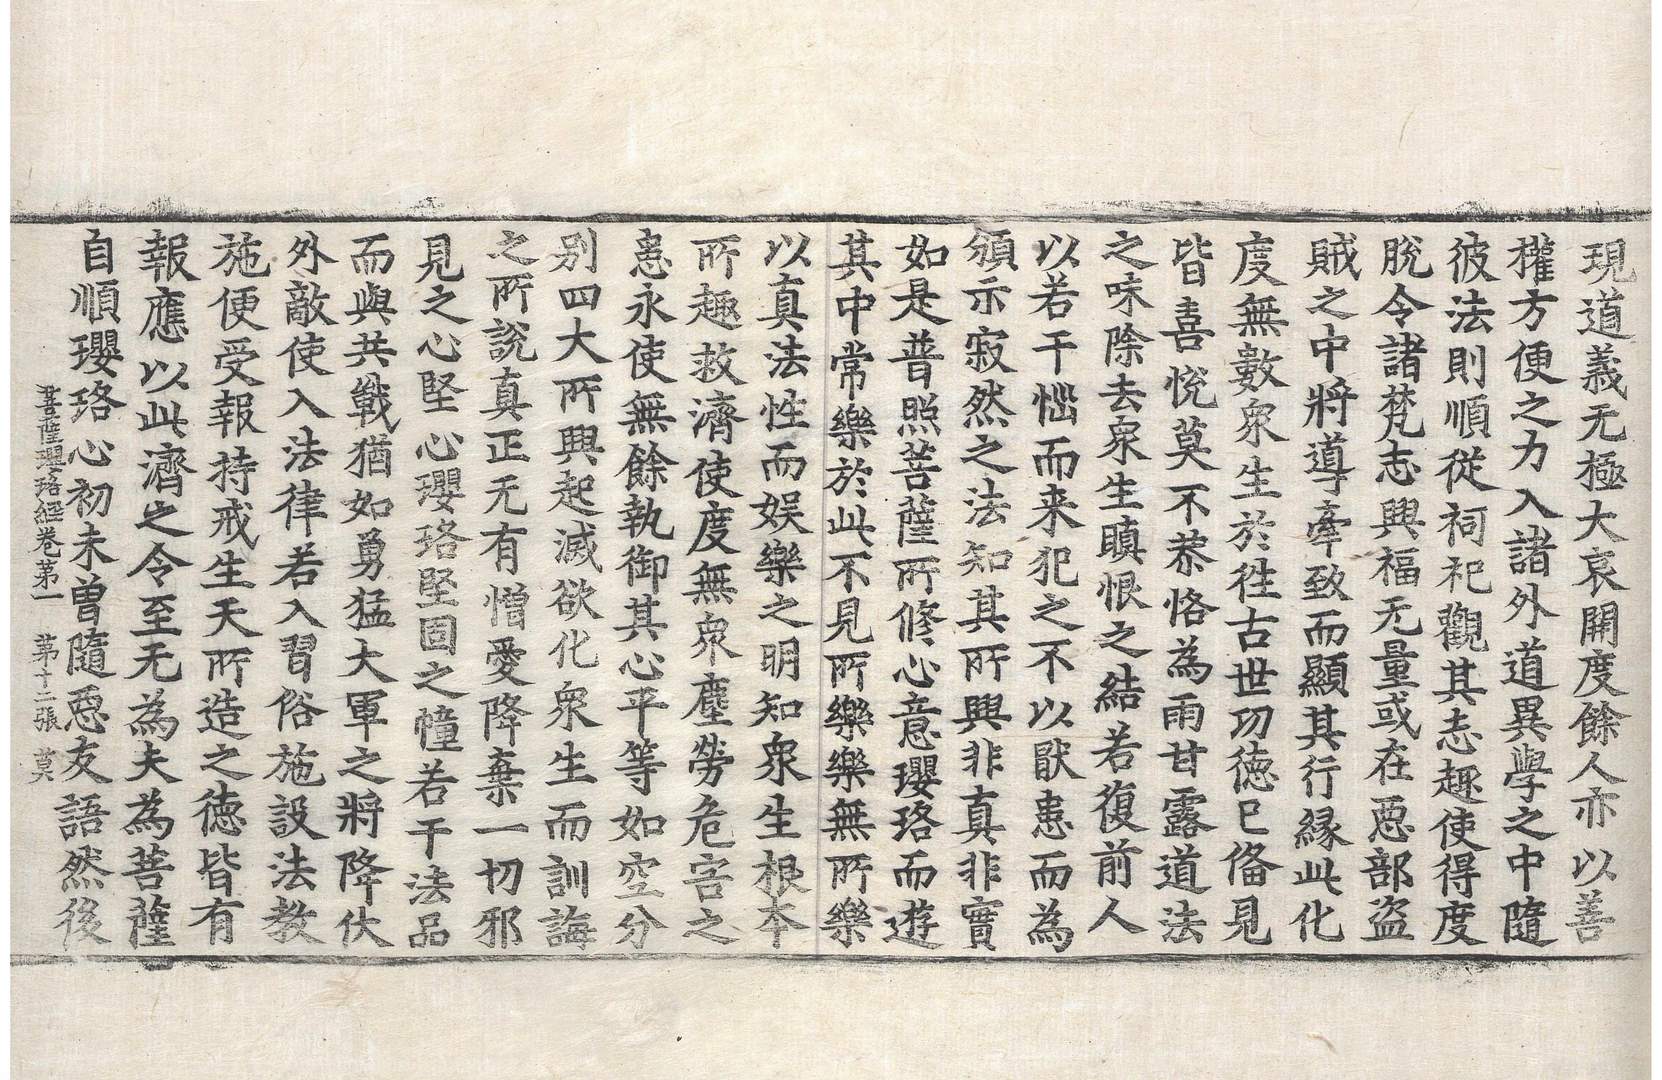 現道義无極大哀開度餘人亦以善
權方便之力入諸外道異學之中隨
彼法則順從祠祀觀其志趣使得度
脫令諸梵志興福无量或在惡部盜
賊之中將導牽致而顯其行緣此化
度無數衆生於徃古世功德已俻見
皆喜悅莫不恭恪為雨甘露道法
之味除去衆生瞋恨之結若復前人
以若干惱而来犯之不以猒患而為
頒示寂然之法知其所興非真非實
如是普照菩薩所修心意瓔珞而遊
其中常樂於此不見所樂樂無所樂
以真法性而娛樂之明知衆生根本
所趣救濟使度無衆塵勞危害之
患永使無餘執御其心平等如空分
別四大所興起滅欲化衆生而訓誨
之所說真正无有憎愛降棄一切邪
見之心堅心瓔珞堅固之幢若干法品
而與共戰猶如勇猛大軍之將降伏
外敵使入法律若入習俗施設法教
施便受報持戒生天所造之德皆有
報應以此濟之令至无為夫為菩薩
自順瓔珞心初未曾隨惡友語然後
菩薩瓔珞經卷第一 第十二張 莫